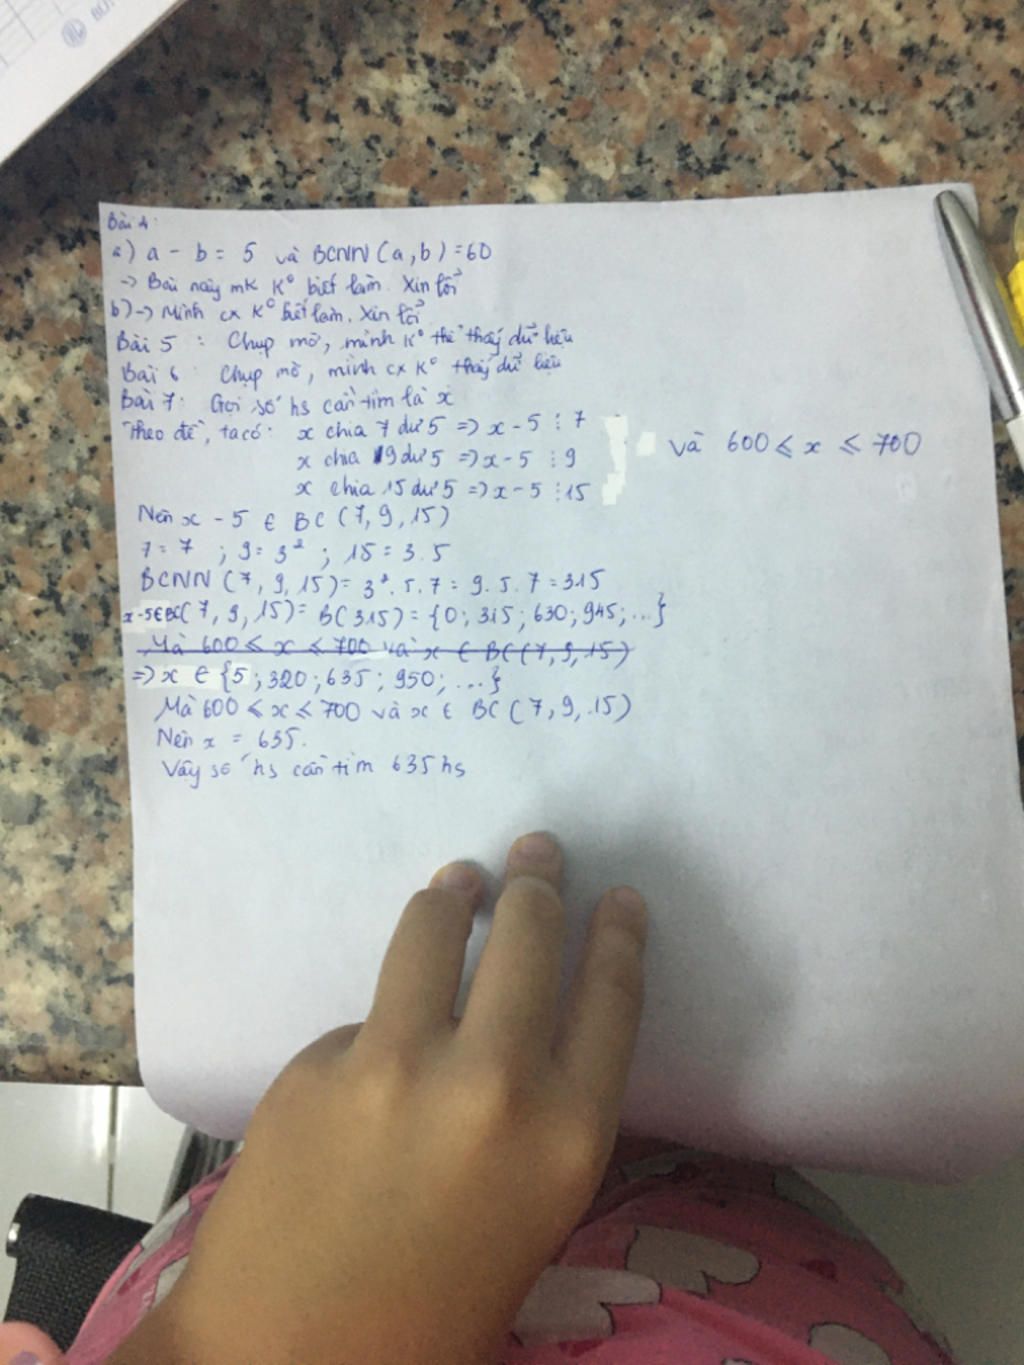 Bài 4:
a) a - b = 5 và BCNN (a, b) = 60
-> Bài này mk K° biết làm. Xin lỗi
b) -> Mình cx K° biết làm. Xin lỗi
Bài 5 : Chụp mờ, mình K° thể thấy dữ liệu
Bài 6 : Chụp mờ, mình cx K° thấy dữ liệu
Bài 7: Gọi số hs cần tìm là x
Theo đề, ta có: x chia 7 dư 5 => x - 5 ⋮ 7
x chia 9 dư 5 => x - 5 ⋮ 9
x chia 15 dư 5 => x - 5 ⋮ 15
và 600 ≤ x ≤ 700
Nên x - 5 ∈ BC (7, 9, 15)
7 = 7 ; 9 = 3² ; 15 = 3.5
BCNN (7, 9, 15) = 3².5.7 = 9.5.7 = 315
x-5∈BC(7, 9, 15) = B(315) = {0; 315; 630; 945; ...}
Mà 600 ≤ x ≤ 700 và x ∈ BC (7, 9, 15)
=> x ∈ {5; 320; 635; 950; ...}
Mà 600 ≤ x ≤ 700 và x ∈ BC (7, 9, 15)
Nên x = 635.
Vậy số hs cần tìm 635 hs